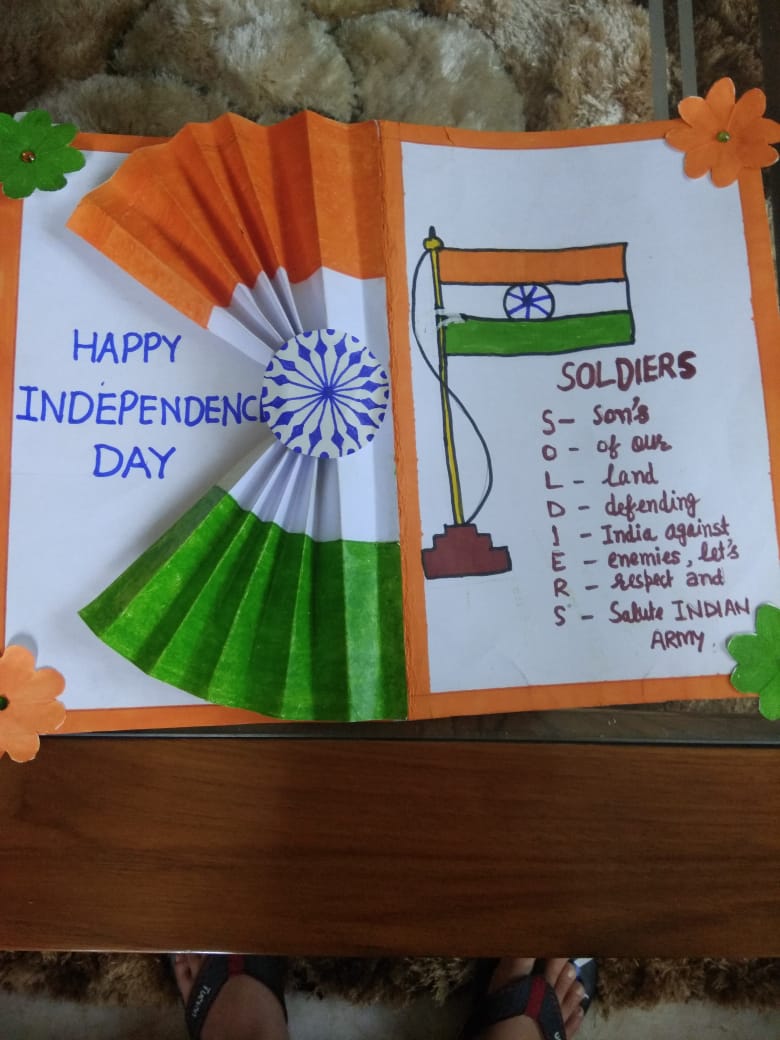 HAPPY
INDEPENDENCE
DAY
SOLDIERS
S - Son's
O - of our
L - land
D - defending
I - India against
E - enemies, let's
R - respect and
S - Salute INDIAN
ARMY.